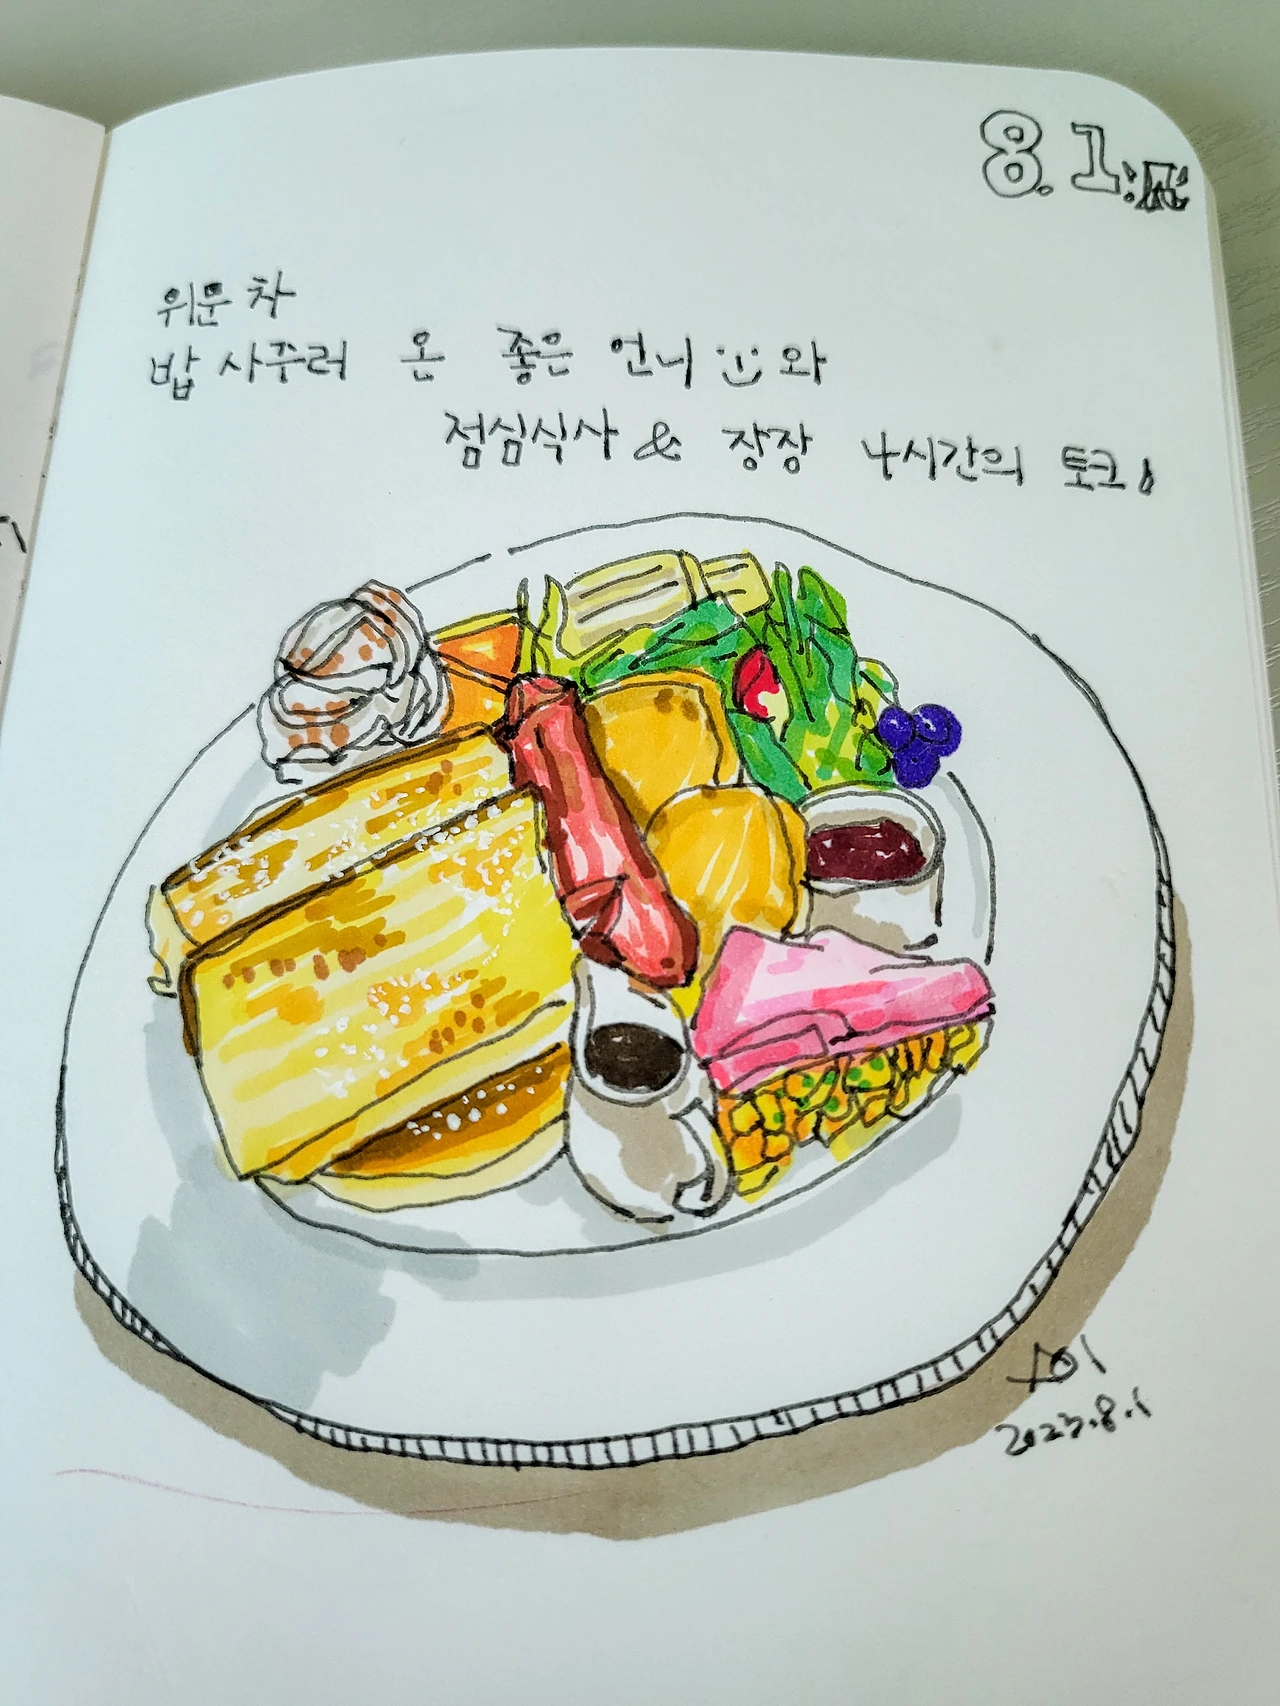 8.1:
위문차
밥 사주러 온 좋은 언니 와
점심식사 & 장장 4시간의 토크!
2023.8.1